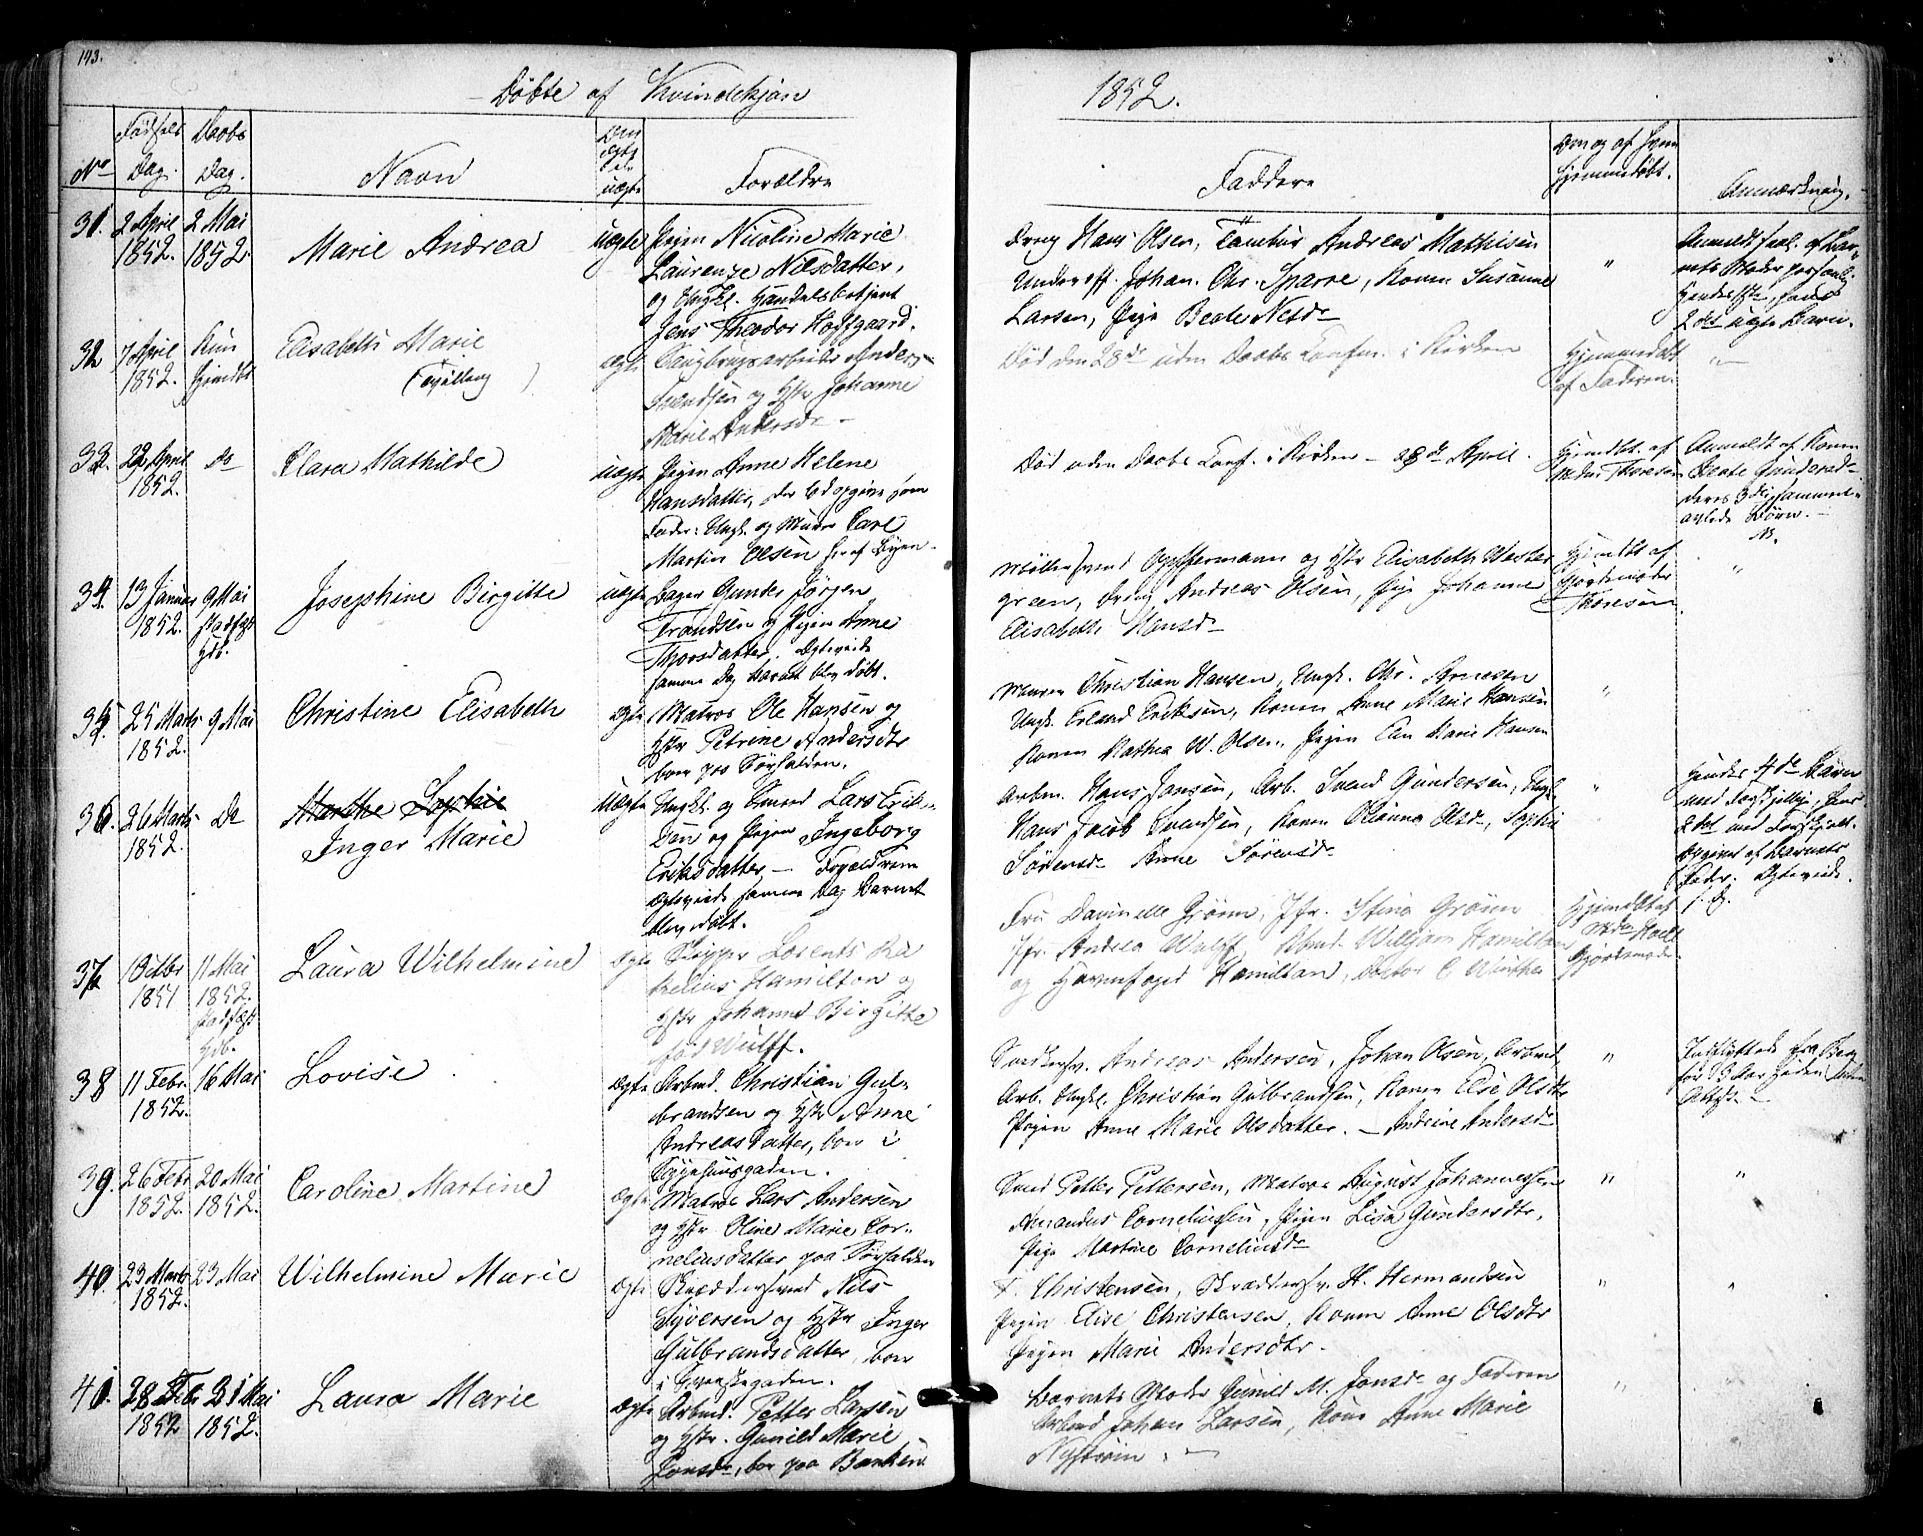 143.
Døbte af Kvindekjøn
1852.
No
Fødsels Dag.
Daabs Dag.
Navn
Om ægte eller uægte
Forældre
Faddere
Om og af hvem hjemmedøbt.
Anmærkning.
31. 2 April 1852. 2 Mai 1852.
Marie Andrea
uægte
Pigen Nicoline Marie
Laurentze Nilsdatter,
og Ungkl. Handelsbetjent
Jens Theodor Hoffgaard.
Hans Olsen, Tambur Andreas Mathisen
Underoff. Johan. Chr. Sparre, Konen Susanne
Larsen, Pige Beate Nilsd
"
32 7 April 1852. Kun hjemdbt
Elisabeth Marie
(Tvilling)
ægte
Anders
Svendsen og Hstr Johanne
Marie Andersd
Død den 28de uden Daabs Confirm. i Kirken
Hjemmedøbt
af Faderen.
"
33. 22 April 1852. do
Clara Mathilde
uægte
Pigen Anne Helene
Hansdatter, der udopgiver som
Fader: Ungk. og Murer Carl
Martin Olsen her af Byen
Død uden Daabs Conf. i Kirken - 28de April.
Hjemdbt. af
Madm Thoresen
Anmeldt af Konen
Beate Gundersd
deres 3die sammen
avlede Børn.
34. 13 Januar 1852. 9 Mai stadfæst hdb.
Josephine Birgitte
uægte
Bager Gunder Jørgen
Frandsen og Pigen Anne
Thorsdatter. Egteviede
samme Dag Barnet blev døbt.
Møllesvend Oppermann og Hstr Elisabeth Wester
green, Andreas Olsen, Pige Johanne
Elisabeth Hansd
Hjemdbt af
Gjordemoder
Thoresen.
"
35. 25 Marts 1852. 9 Mai
Christine Elisabeth
ægte
Matros Ole Hansen og
Hstr Petrine Andersdtr
boer paa Sørhalden.
Murer Christian Hansen, Ungk. Chr. Arnesen
Ungk. Erland Eriksen, Konen Anne Marie Hansen
Konen Mathea W. Olsen, Pigen Elen Marie Hansen
"
36. 26 Marts 1852. Do
Marthe Sophie
Inger Marie
Uægte
Ungkl. og Smed Lars Erik
sen og Pigen Ingeborg
Eriksdatter - Forældrene
ægteviede samme Dag Barnet
blev døbt.
Arbm. Hans Jansen, Arb. Svend Gundersen, Ungk.
Hans Jacob Svendsen, Konen Olianna Olsd, Sophie
Sørensd Anne Sørensd
"
Hendes 4de Barn
2det med
opgivet af Barnets
Fader. Egteviede.
37. 1851 11 Mai 1852. stadfæst hdb.
Laura Wilhelmine
ægte
Skipper Lorents
Hamilton og
Hstr Johanne Birgitte
fød Wulff.
Fru Grønn, Jfr. Stina Grønn
Jfr. Andrea Wulff, Willjam Hamilton
og Havnefoged Hamilton, Doctor C Winther
Hjemdbt af
Gjordemoder
38 11 Febr. 1852. 16 Mai
Lovise
Ægte
Arbmd. Christian Gul-
brandsen og Hstr Anne
Andreasdatter, boer i
Sygehuusgaden.
Andreas Andersen, Johan Olsen, Arbmd.
Arb. Ungkl. Christian Gulbrandsen, Konen Else Olsdtr
Pigen Anne Marie Olsdatter. - Andrine Andersd
"
Indflyttede fra Berg
for 3 Aar siden uden
Attest.
39. 26 Febr 1852. 20 Mai 1852.
Caroline Martine
Ægte
Matros Lars Andersen
og Hstr Oline Marie Cor-
neliusdatter paa Sørhalden
Smed Petter Pettersen, Matros August Johannessen
Amandus Corneliussen, Pigen Lisa Gundersdtr,
Pige Martine Corneliusd
"
"
40. 23 Marts 1852. 23 Mai
Wilhelmine Marie
Ægte
Skræddersvend Nils
Syversen og Hstr Inger
Gulbrandsdatter, boer
i Svenskegaden.
Christensen, Skræddersv. H. Hermandsen
Pigen Elise Christensen, Konen Anne Olsdtr
Pigen Marie Andersdtr.
"
"
41. 28 Feb 1852 31 Mai 1852.
Laura Marie
Ægte
Arbmd. Petter Larsen
og Hstr. Gunild Marie
Jonsd, boer paa Banken
Barnets Moder Gunild M. Jonsd og Faderen
Arbmd Johan Larsen, Kone Anne Marie
Nystrøm.
"